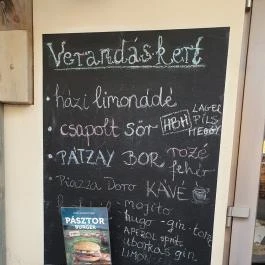 Verandás kert
• házi limonádé
• csapolt sör HBH LAGER
PILS
HEGGY
• PATZAY BOR rozé
fehér
• Piazza Doro KÁVÉ
mojito
hugo - gin-tonic
APEROL spritz
uborkás gin
PÁSZTOR
BURGER